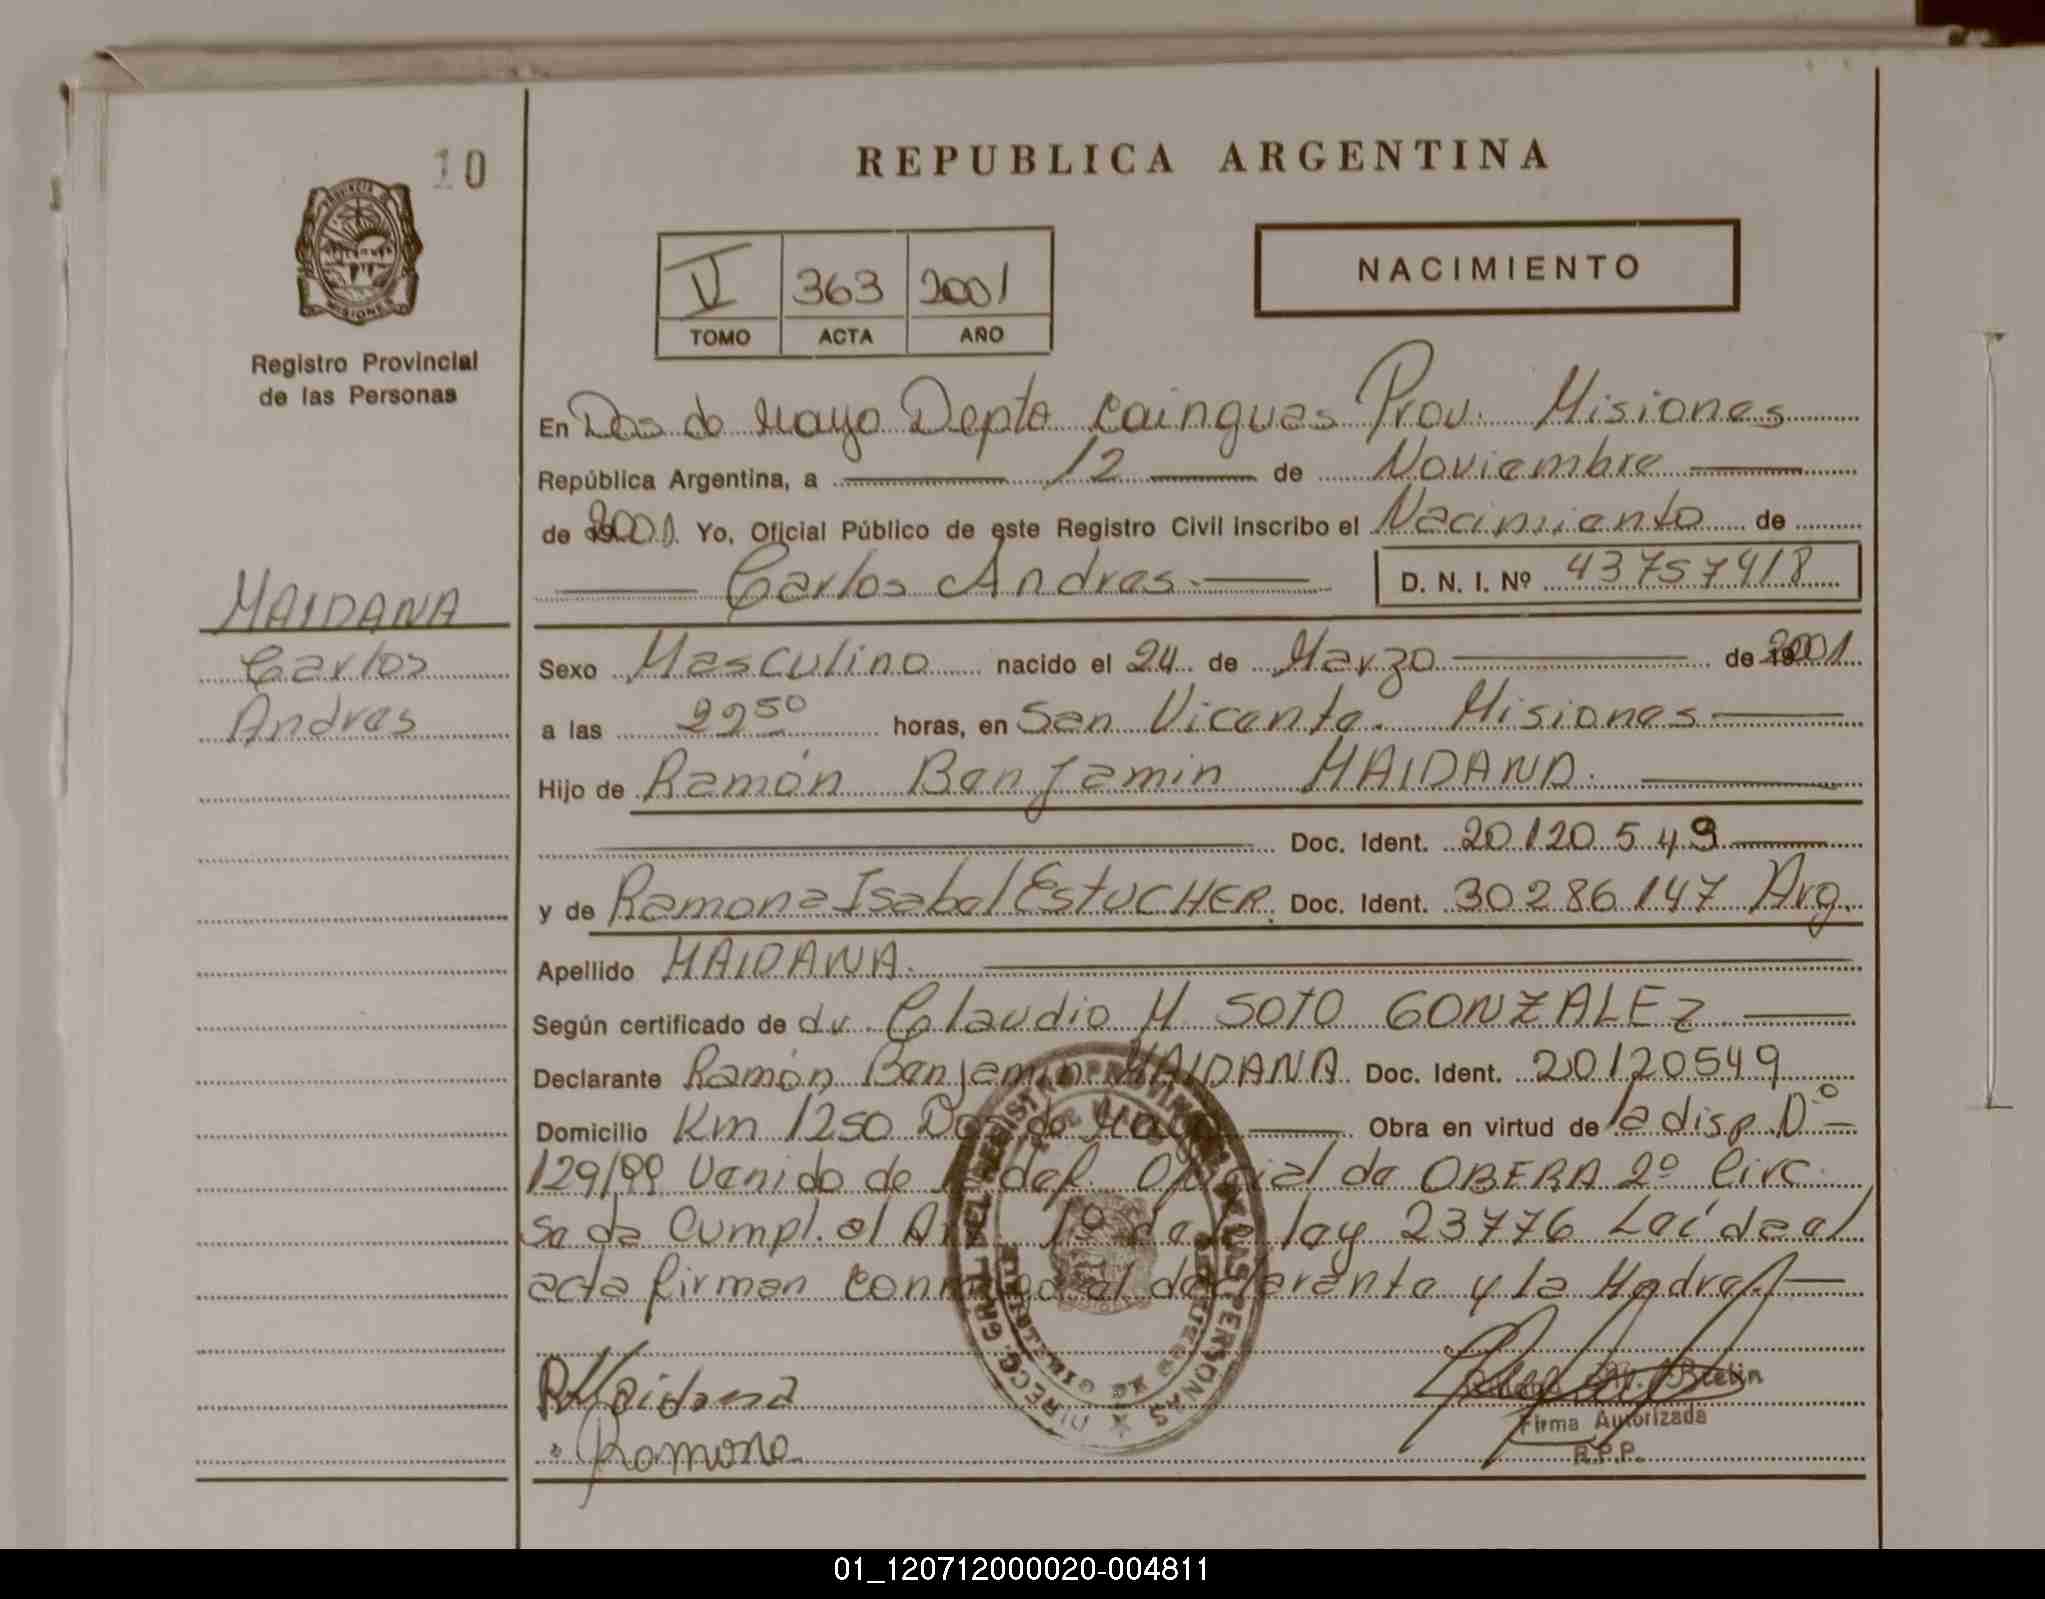 10
PROVINCIA DE
MISIONES
Registro Provincial
de las Personas
MAIDANA
Carlos
Andres
REPUBLICA ARGENTINA
V 363 2001
TOMO ACTA AÑO
NACIMIENTO
En Dos de Mayo Depto Cainguas Prov. Misiones
República Argentina, a 12 de Noviembre
de 2001. Yo, Oficial Público de este Registro Civil inscribo el Nacimiento de
Carlos Andres. D. N. I. Nº 43757418
Sexo Masculino nacido el 24 de Marzo de 2001
a las 22 50 horas, en San Vicente. Misiones
Hijo de Ramón Benjamin MAIDANA.
Doc. Ident. 20120549
y de Ramona Isabel EstUCHER. Doc. Ident. 30286147 Arg.
Apellido MAIDANA.
Según certificado de dr. Claudio M SOTO GONZALEZ
Declarante Ramón Benjamin MAIDANA Doc. Ident. 20120549
Domicilio Km 1250 Dos de Mayo Obra en virtud de la disp. Nº
129/99 Venido de def. Oficial de OBERA 2º Circ.
Se da Cumpl. al Art 1º de la ley 23776 Leída el
acta firman conmigo el declarante y la Madre
R Maidana
Ramona
DIRECC. GRAL. DEL REGISTRO PROVINCIAL DE LAS PERSONAS
Firma Autorizada
R.P.P.
01_120712000020-004811